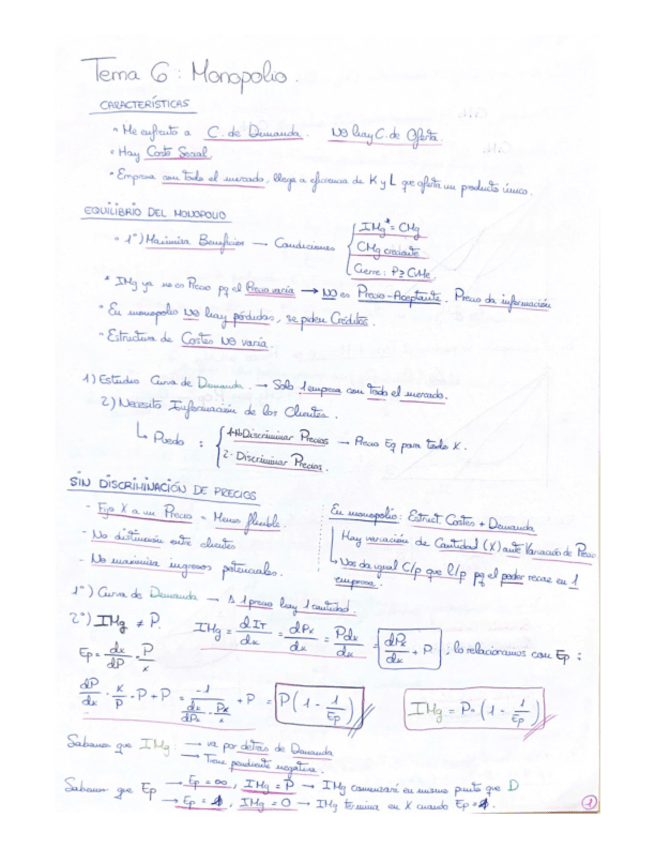 Tema 6: Monopolio.
CARACTERÍSTICAS
Me enfrento a C. de Demanda. NO hay C. de Oferta.
Hay Coste Social.
Empresa con todo el mercado, llega a eficiencia de K y L que oferta un producto único.
EQUILIBRIO DEL MONOPOLIO
1º) Maximiza Beneficios → Condiciones { IMg = CMg
CMg creciente
Cierre: P ≥ CVMe
* IMg ya no es Precio pq el Precio varía → NO es Precio-Aceptante. Precio da información
En monopolio NO hay pérdidas, se piden Créditos.
Estructura de Costes NO varía.
1) Estudio Curva de Demanda. → Solo 1 empresa con todo el mercado.
2) Necesito Información de los Clientes.
↳ Puedo: { 1. NO Discriminar Precios → Precio Eq para todo X.
2. Discriminar Precios.
SIN DISCRIMINACIÓN DE PRECIOS
- Fijo X a un Precio = Menos flexible.
- No distinción entre clientes
- No maximiza ingresos potenciales.
En monopolio: Estruct. Costes + Demanda
Hay variación de Cantidad (X) ante Variación de Precio
↳ Nos da igual C/p que l/p pq el poder recae en 1
empresa.
1º) Curva de Demanda → A 1 precio hay 1 cantidad.
2º) IMg ≠ P. IMg = dIT/dx = dPx/dx = Pdx/dx = dPx/dx + P ; lo relacionamos con Ep:
Ep = dx/dP · P/x
dP/dx · x/P · P + P = -1/(dx/dPx · Px/x) + P = P(1 - 1/Ep) IMg = P · (1 - 1/Ep)
Sabemos que IMg: → va por detrás de Demanda
→ Tiene pendiente negativa.
Sabemos que Ep → Ep = ∞, IMg = P → IMg comenzará en mismo punto que D
→ Ep = 1, IMg = 0 → IMg termina en X cuando Ep = 1.
1